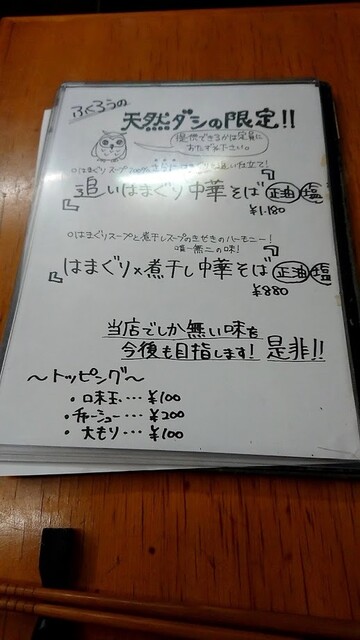 ふくろうの
天然ダシの限定!!
提供できるかは定員に
おたずね下さい。
○はまぐりスープ 追い仕立て!
『追いはまぐり中華そば』正油 塩
¥1.180
○はまぐりスープと煮干しスープのきせきのハーモニー!
唯一無二の味!
『はまぐり×煮干し中華そば』正油 塩
¥880
当店でしか無い味を
今後も目指します! 是非!!
〜トッピング〜
・味玉・・・¥100
・チャーシュー・・・¥200
・大もり・・・¥100